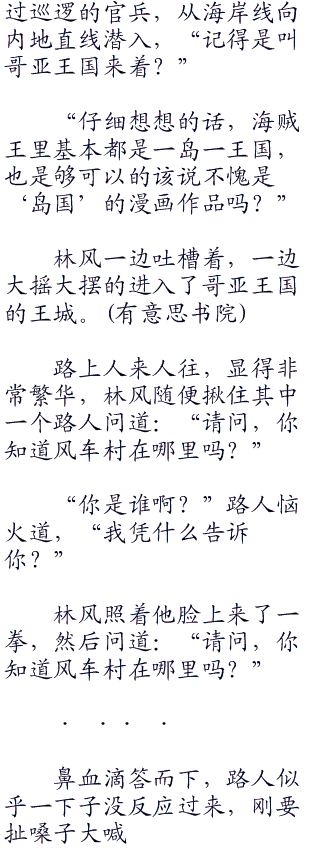 过巡逻的官兵，从海岸线向
内地直线潜入，“记得是叫
哥亚王国来着？”
“仔细想想的话，海贼
王里基本都是一岛一王国，
也是够可以的该说不愧是
‘岛国’的漫画作品吗？”
林风一边吐槽着，一边
大摇大摆的进入了哥亚王国
的王城。(有意思书院)
路上人来人往，显得非
常繁华，林风随便揪住其中
一个路人问道：“请问，你
知道风车村在哪里吗？”
“你是谁啊？”路人恼
火道，“我凭什么告诉
你？”
林风照着他脸上来了一
拳，然后问道：“请问，你
知道风车村在哪里吗？”
· · · ·
鼻血滴答而下，路人似
乎一下子没反应过来，刚要
扯嗓子大喊